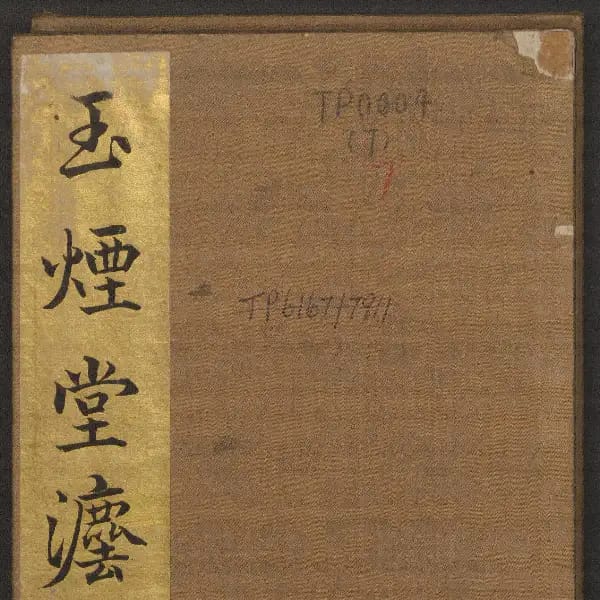 玉煙堂灋
TP6167/7911